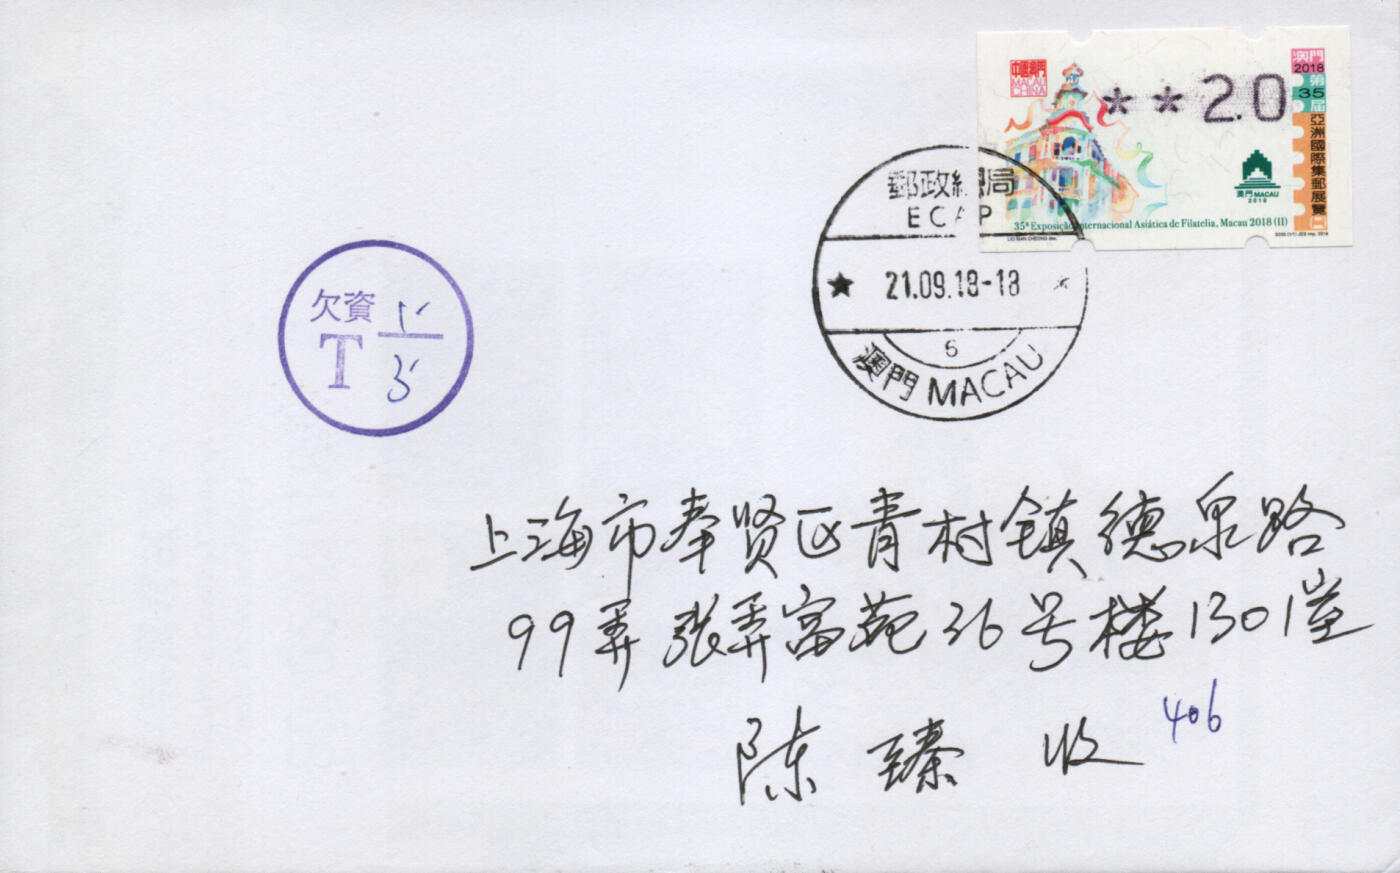 中國澳門
MACAU
CHINA
**2.0
澳門
2018
第
35
屆
亞洲國際集郵展覽
澳門 MACAU
2018
35ª Exposição Internacional Asiática de Filatelia, Macau 2018 (II)
LIO MAN CHEONG des.
郵政總局
ECAP
21.09.18-18
6
澳門 MACAU
欠資
T
5
上海市奉贤区青村镇德泉路
99弄张弄富苑36号楼1301室
陈臻 收
406